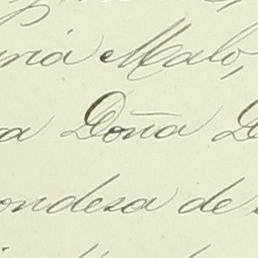 ria Malo,
a Doña
ondesa de